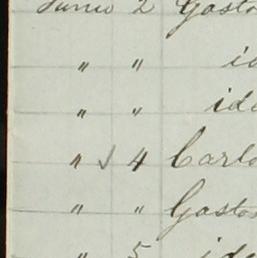 Junio 2 Gasto
" " id
" " ide
" √ 4 Carlo
" " Gaston
" 5 ide